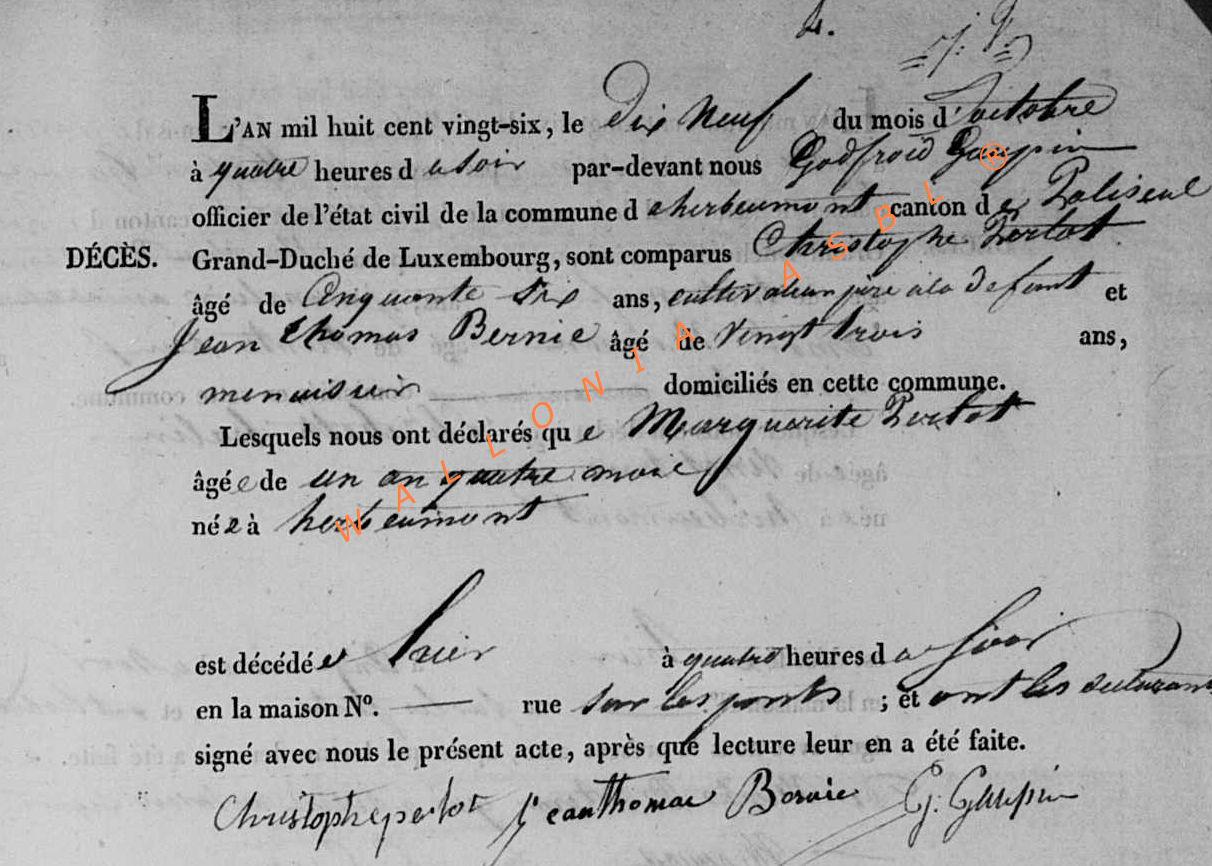 4.
L'AN mil huit cent vingt-six, le dix neuf du mois d'octobre
à quatre heures du soir par-devant nous Godfroid Gaupin
officier de l'état civil de la commune d'herbeumont canton de Paliseul
DÉCÈS. Grand-Duché de Luxembourg, sont comparus Christophe Pertot
âgé de Cinquante Six ans, cultivateur père à la defunt et
Jean thomas Bernie âgé de vingt trois ans,
menuisier domiciliés en cette commune.
Lesquels nous ont déclarés que Marguerite Pertot
âgée de un an quatre mois
née à herbeumont
est décédée hier à quatre heures du soir
en la maison N°. — rue sur les ponts ; et ont les declarans
signé avec nous le présent acte, après que lecture leur en a été faite.
Christophe pertot Jean thomas Bernie G. Gaupin
WALLONIA ASBL ®